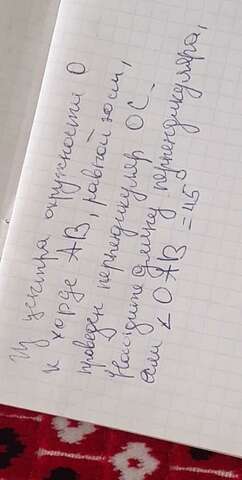 Из центра окружности О
к хорде АВ, равной 20 см,
проведен перпендикуляр ОС.
Найдите длину перпендикуляра,
если ∠ОАВ = 45°